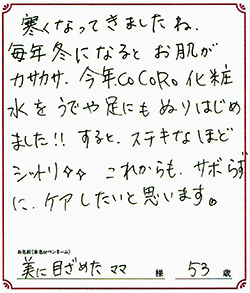 寒くなってきましたね.
毎年冬になると お肌が
カサカサ. 今年CoCoRo化粧
水をうでや足にもぬりはじめ
ました!! すると、ステキなほど
シットリ☆☆ これからも、サボらず
に、ケアしたいと思います。
お名前(本名orペンネーム)
美に目ざめたママ 様 53 歳